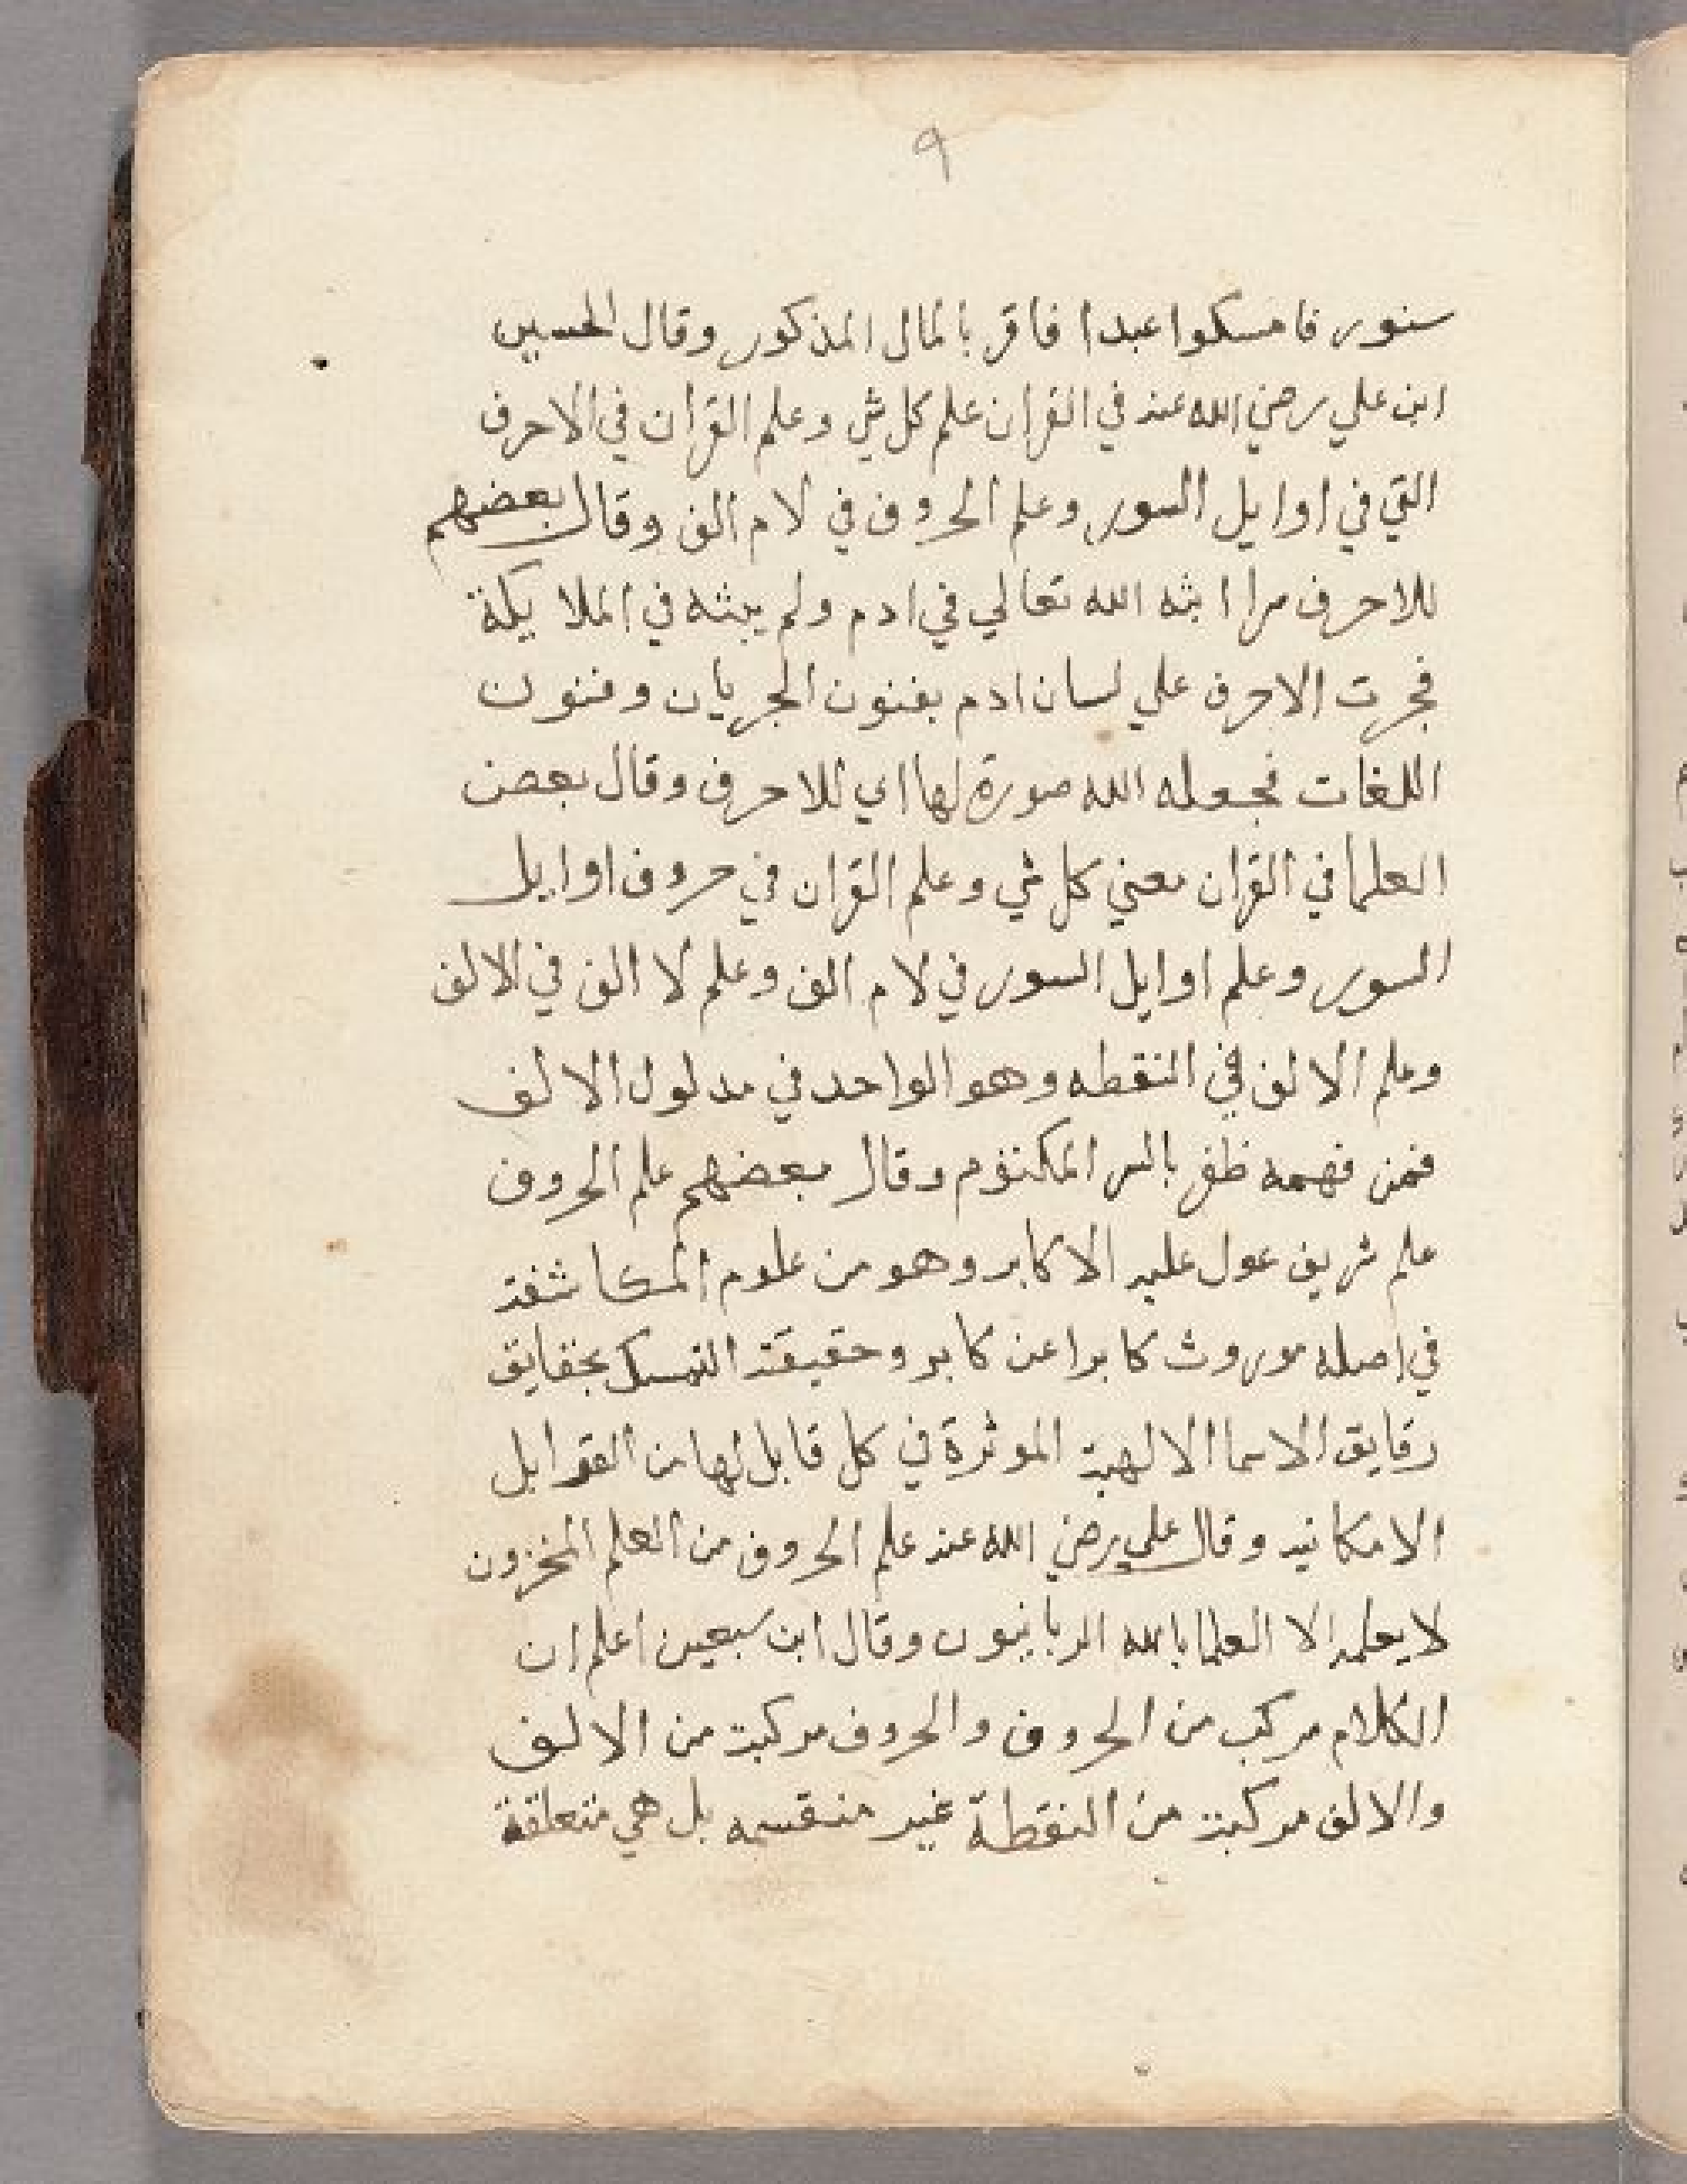 ٩
سنور فامسكوا عبدا فاقر بالمال المذكور وقال الحسين
ابن علي رضي الله عنه في القران علم كل شي وعلم القران في الاحرف
التي في اوايل السور وعلم الحروف في لام الف وقال بعضهم
للاحرف سرا بثه الله تعالي في ادم ولم يبثه في الملايكة
فجرت الاحرف علي لسان ادم بفنون الجريان وفنون
اللغات فجعله الله صورة لها اي للاحرف وقال بعض
العلما في القران معني كل شي وعلم القران في حروف اوايل
السور وعلم اوايل السور في لام الف وعلم لا الف في الالف
وعلم الالف في النقطه وهو الواحد في مدلول الالف
فمن فهمه ظفر بالسر المكتوم وقال بعضهم علم الحروف
علم شريف عول عليه الاكابر وهو من علوم المكاشفة
في اصله موروث كابرا عن كابر وحقيقة التمسك بحقايق
رقايق الاسما الالهية الموثرة في كل قابل لها من القوابل
الامكانية وقال علي رضي الله عنه علم الحروف من العلم المخزون
لا يعلمه الا العلما بالله الربانيون وقال ابن سبعين اعلم ان
الكلام مركب من الحروف والحروف مركبة من الالف
والالف مركبة من النقطة غير منقسمه بل هي متعلقة